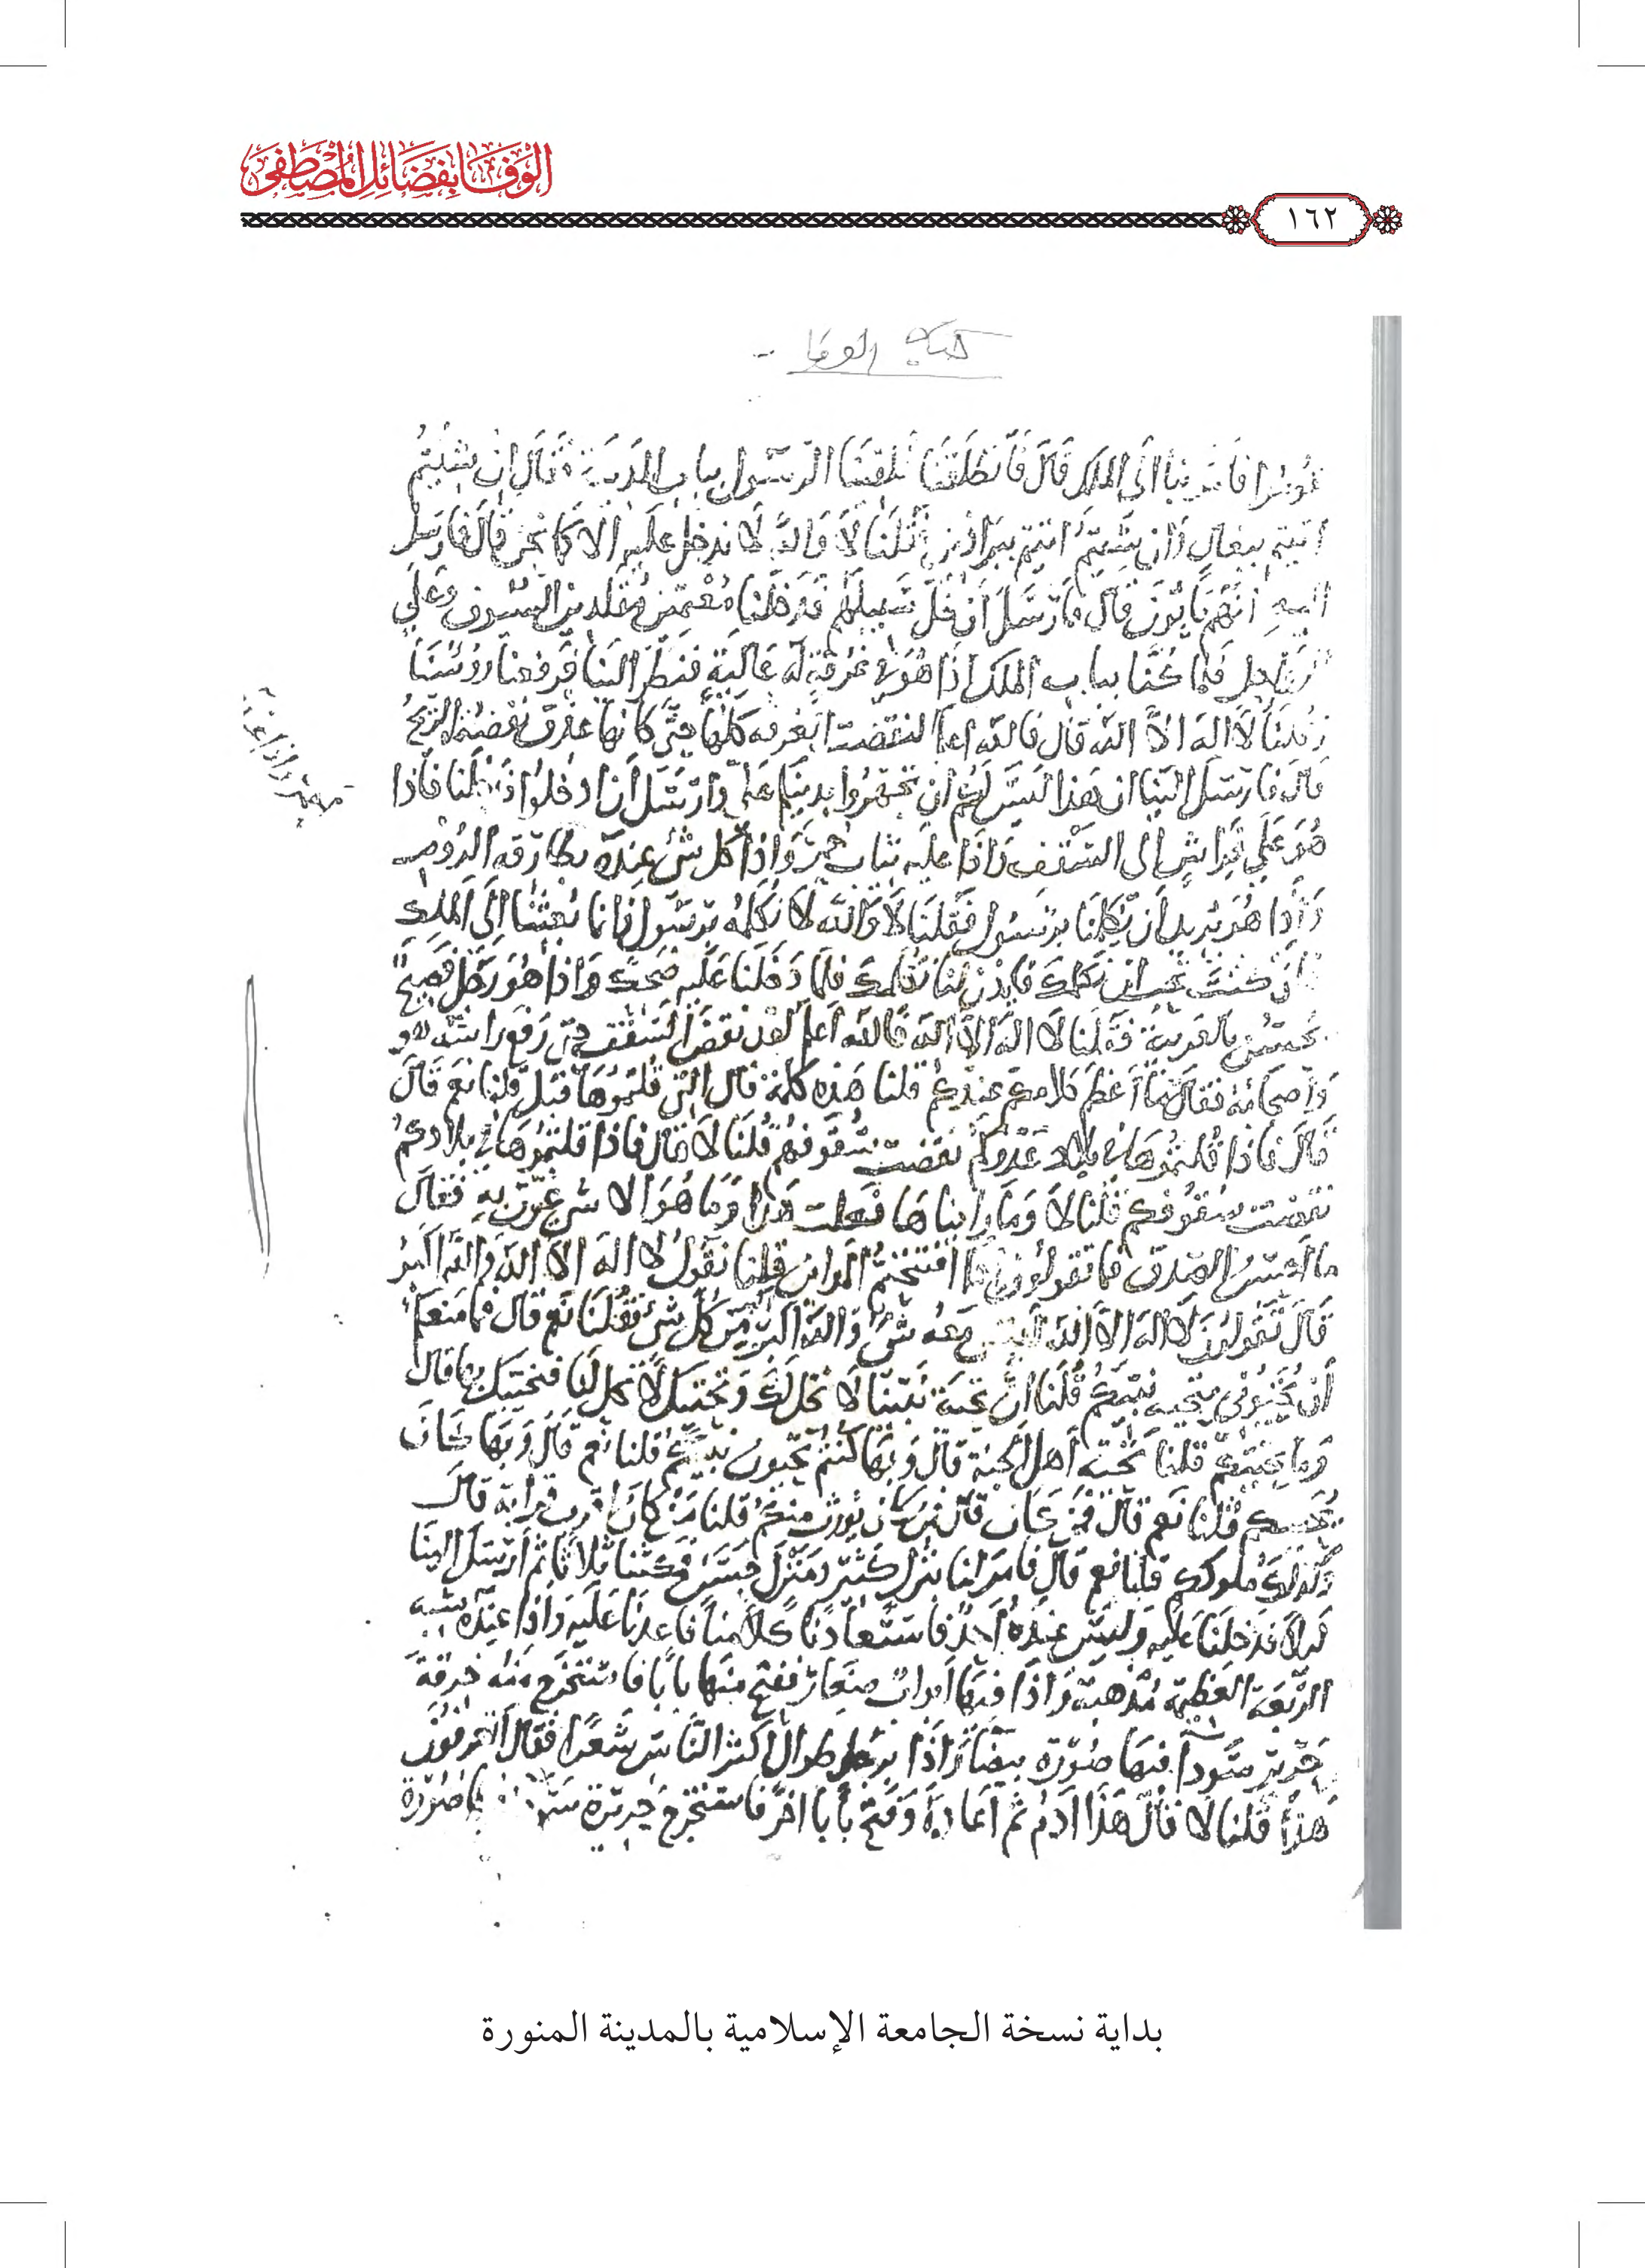 الوَفَا بِفَضَائِلِ المُصْطَفَى
١٦٢
كتاب الوفا
فانطلقنا فلقينا الرسول بباب المدينة فقال ان شيتم
اتيتم ببغال وان شيتم اتيتم ببراذين فقلنا لا والله لا ندخل عليه الا كما نحن قال فارسل
اليه انهم يابون قال فارسل ان خل سبيلهم فدخلنا معتمين متقلدين السيوف وعلي
الرواحل فلما كنا بباب الملك اذا هو في غرفة له عالية فنظر الينا فرفعنا روسنا
فقلنا لا اله الا الله قال فالله اعلم لنقضت الغرفه كلها حتي كانها عذق نفضته الريح
قال فارسل الينا ان هذا ليس لكم ان تجهروا بدينكم علي وارسل ان ادخلوا فدخلنا فاذا
هو علي فراش الى السقف واذا عليه ثياب حمر واذا كل شي عنده بطارقه الروم
واذا هو يريد ان يكلمنا برسول فقلنا لا والله لا نكلمه برسول فانما بعثنا الى الملك
فان كنت تحب ان نكلمك فايذن لنا نكلمك فلما دخلنا عليه ضحك واذا هو رجل فصيح
يحسن بالعربية فقلنا لا اله الا الله فالله اعلم لقد نقض السقف حتى رفع راسه هو
واصحابه فقال ما اعظم كلامكم عندكم قلنا هذه كلمة قال التي قلتموها قبل قلنا نعم قال
قال فاذا قلتموها في بلاد عدوكم نقضت سقوفهم قلنا لا قال فاذا قلتموها في بلادكم
نقضت سقوفكم قلنا لا وما رايناها فعلت هذا وما هو الا شي عبرت به فقال
ما احسن الصدق فما تقولون اذا افتتحتم المداين قلنا نقول لا اله الا الله والله اكبر
قال تقولون لا اله الا الله ليس معه شي والله اكبر من كل شي فقلنا نعم قال فما منعكم
ان تحيوني بتحية نبيكم قلنا ان تحية نبينا لا تحل لك وتحيتك لا تحل لنا فنحييك بها قال
وما تحيتكم قلنا تحية اهل الجنة قال وبها كنتم تحيون نبيكم قلنا نعم قال وبها كان
يحييكم قلنا نعم قال فمن كان يورث منكم قلنا من كان اقرب قرابة قال
وكذلك ملوككم قلنا نعم قال فامر لنا بنزل كثير ومنزل حسن فمكثنا ثلاثا ثم ارسل الينا
ليلا فدخلنا عليه وليس عنده احد فاستعادنا كلامنا فاعدنا عليه واذا عنده شبه
الربعة العظيمة مذهبة واذا فيها ابواب صغار ففتح منها بابا فاستخرج منه خرقة
حرير سوداً فيها صورة بيضا واذا برجل طوال اكثر الناس شعرا فقال اتعرفون
هذا قلنا لا قال هذا آدم ثم اعاده وفتح بابا اخر فاستخرج حريرة صورة
بداية نسخة الجامعة الإسلامية بالمدينة المنورة